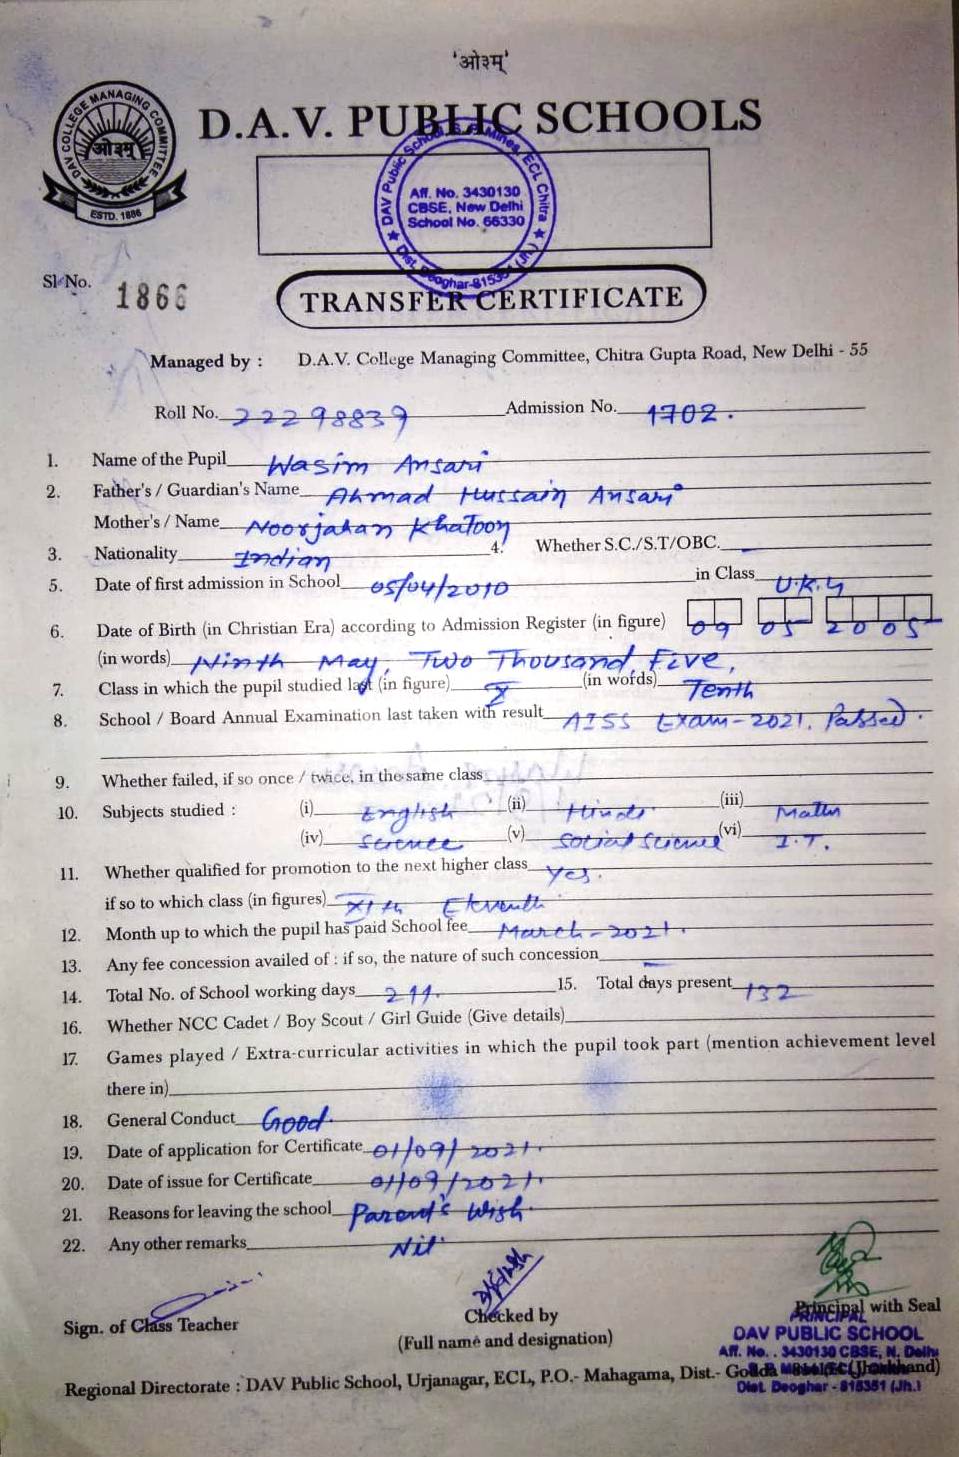 'ओ३म्'
DAV COLLEGE MANAGING COMMITTEE
ओ३म्
ESTD. 1886
D.A.V. PUBLIC SCHOOLS
DAV Public School, S. P. Mines, ECL Chitra
Aff. No. 3430130
CBSE, New Delhi
School No. 66330
Dist. Deoghar-815351 (Jh.)
Sl No. 1866
TRANSFER CERTIFICATE
Managed by : D.A.V. College Managing Committee, Chitra Gupta Road, New Delhi - 55
Roll No. 22298839 Admission No. 1702.
1. Name of the Pupil Wasim Ansari
2. Father's / Guardian's Name Ahmad Hussain Ansari
Mother's / Name Noorjahan Khatoon
3. Nationality Indian 4. Whether S.C./S.T/OBC. -
5. Date of first admission in School 05/04/2010 in Class U.K.G
6. Date of Birth (in Christian Era) according to Admission Register (in figure) 09 05 2005
(in words) Ninth May, Two Thousand Five,
7. Class in which the pupil studied last (in figure) X (in words) Tenth
8. School / Board Annual Examination last taken with result AISS Exam-2021, Passed.
9. Whether failed, if so once / twice, in the same class
10. Subjects studied : (i) English (ii) Hindi (iii) Maths
(iv) Science (v) Social Science (vi) I.T.
11. Whether qualified for promotion to the next higher class Yes.
if so to which class (in figures) XIth Eleventh
12. Month up to which the pupil has paid School fee March-2021.
13. Any fee concession availed of : if so, the nature of such concession -
14. Total No. of School working days 211. 15. Total days present 132
16. Whether NCC Cadet / Boy Scout / Girl Guide (Give details)
17. Games played / Extra-curricular activities in which the pupil took part (mention achievement level
there in)
18. General Conduct Good.
19. Date of application for Certificate 01/09/2021.
20. Date of issue for Certificate 01/09/2021.
21. Reasons for leaving the school Parent's Wish.
22. Any other remarks Nil
Sign. of Class Teacher
Checked by
(Full name and designation)
Principal with Seal
PRINCIPAL
DAV PUBLIC SCHOOL
Aff. No. . 3430130 CBSE, N. Delhi
Regional Directorate : DAV Public School, Urjanagar, ECL, P.O.- Mahagama, Dist.- Godda (Jharkhand)
Dist. Deoghar - 815351 (Jh.)